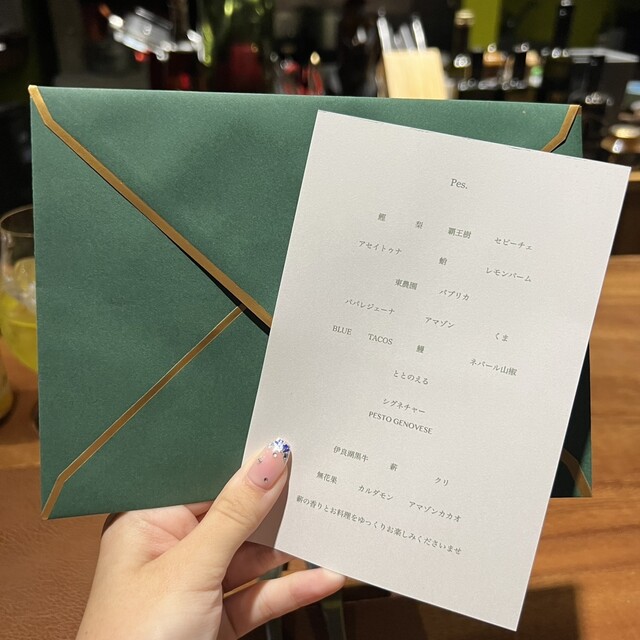 Pes.
鰹 梨 覇王樹 セビーチェ
アセイトゥナ 蛤 レモンバーム
東農園 パプリカ
パバレジェーナ アマゾン くま
BLUE TACOS 鰻 ネパール山椒
ととのえる
シグネチャー
PESTO GENOVESE
伊良湖黒牛 薪 クリ
無花果 カルダモン アマゾンカカオ
薪の香りとお料理をゆっくりお楽しみくださいませ